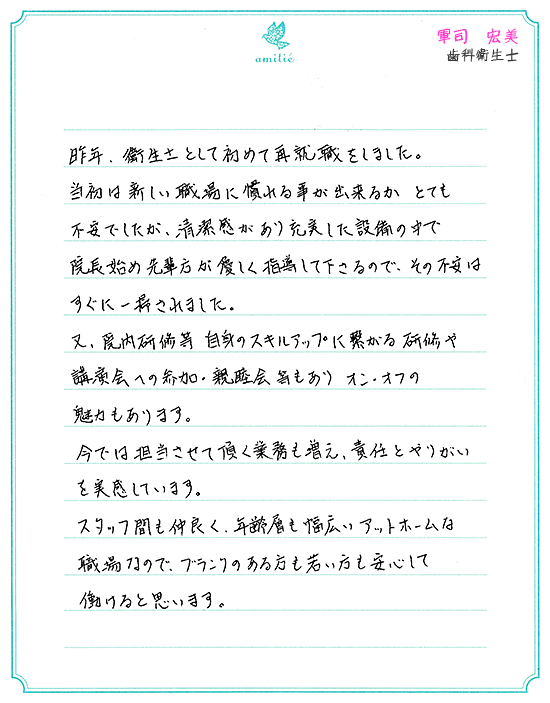 amitié
軍司 宏美
歯科衛生士
昨年、衛生士として初めて再就職をしました。
当初は新しい職場に慣れる事が出来るか とても
不安でしたが、清潔感があり充実した設備の中で
院長始め先輩方が優しく指導して下さるので、その不安は
すぐに一掃されました。
又、院内研修等 自身のスキルアップに繋がる研修や
講演会への参加・親睦会等もあり オン・オフの
魅力もあります。
今では担当させて頂く業務も増え、責任とやりがい
を実感しています。
スタッフ間も仲良く、年齢層も幅広いアットホームな
職場なので、ブランクのある方も若い方も安心して
働けると思います。